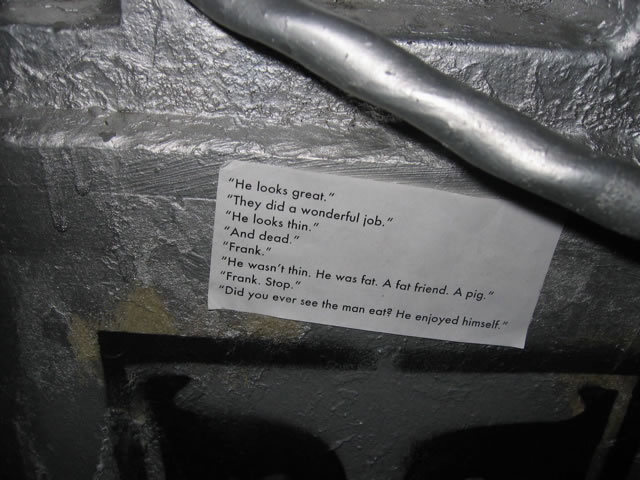 "He looks great."
"They did a wonderful job."
"He looks thin."
"And dead."
"Frank."
"He wasn't thin. He was fat. A fat friend. A pig."
"Frank. Stop."
"Did you ever see the man eat? He enjoyed himself."